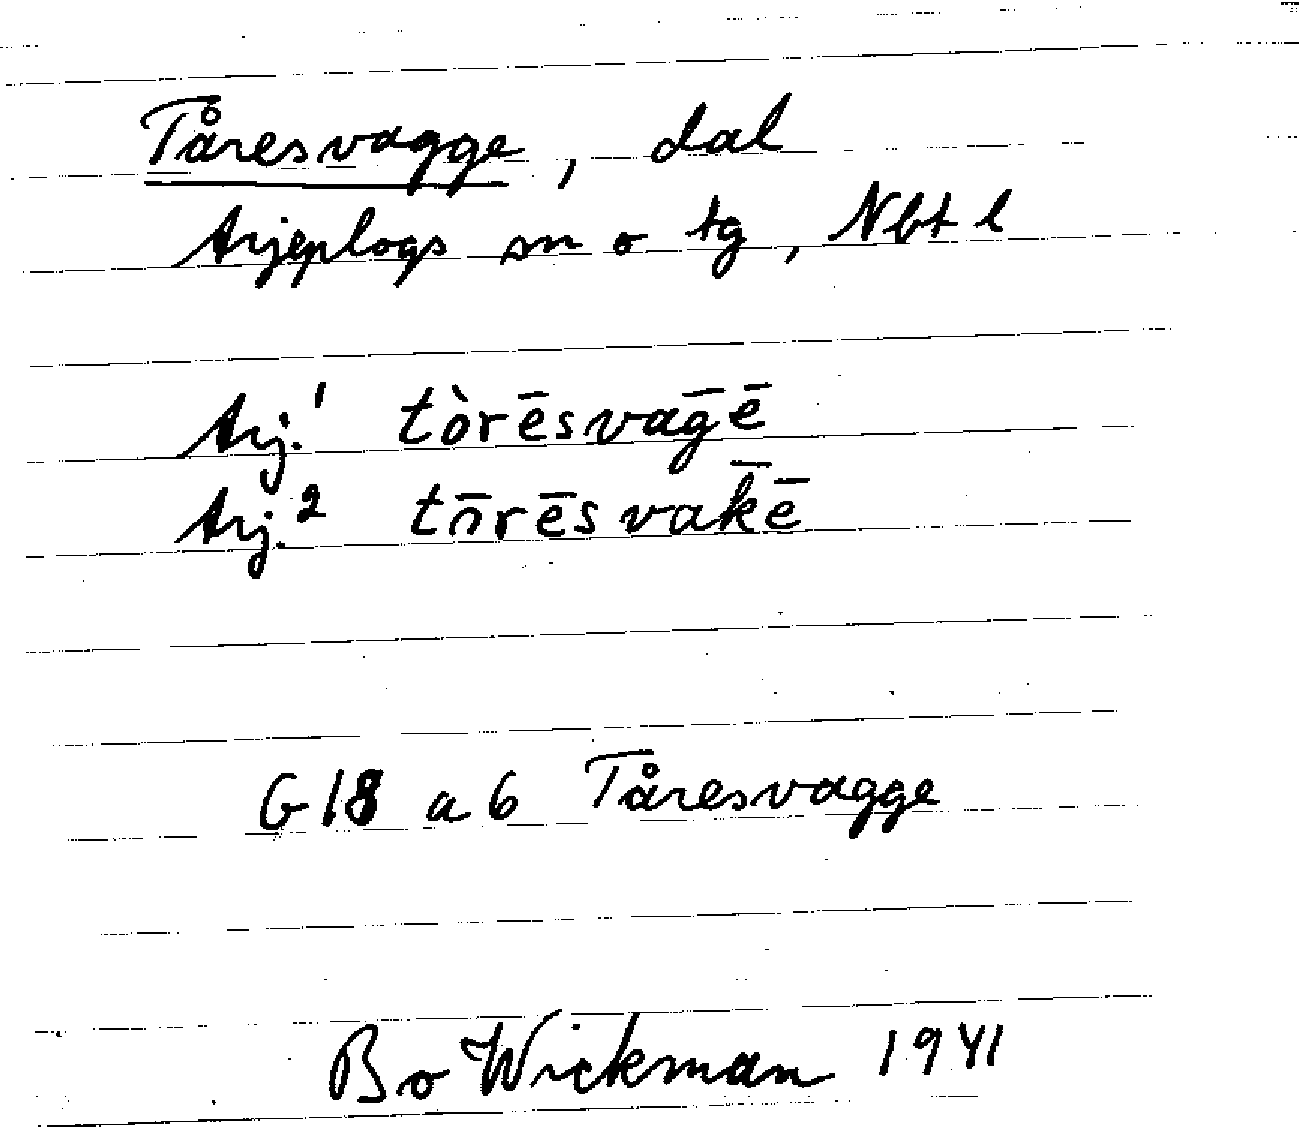 Tåresvagge, dal
Arjeplogs sn o tg, Nbt l
Arj.¹ tòrēsvaḡē
Arj.² tn̄rēsvak̄ē
G18 a 6 Tåresvagge
Bo Wickman 1941